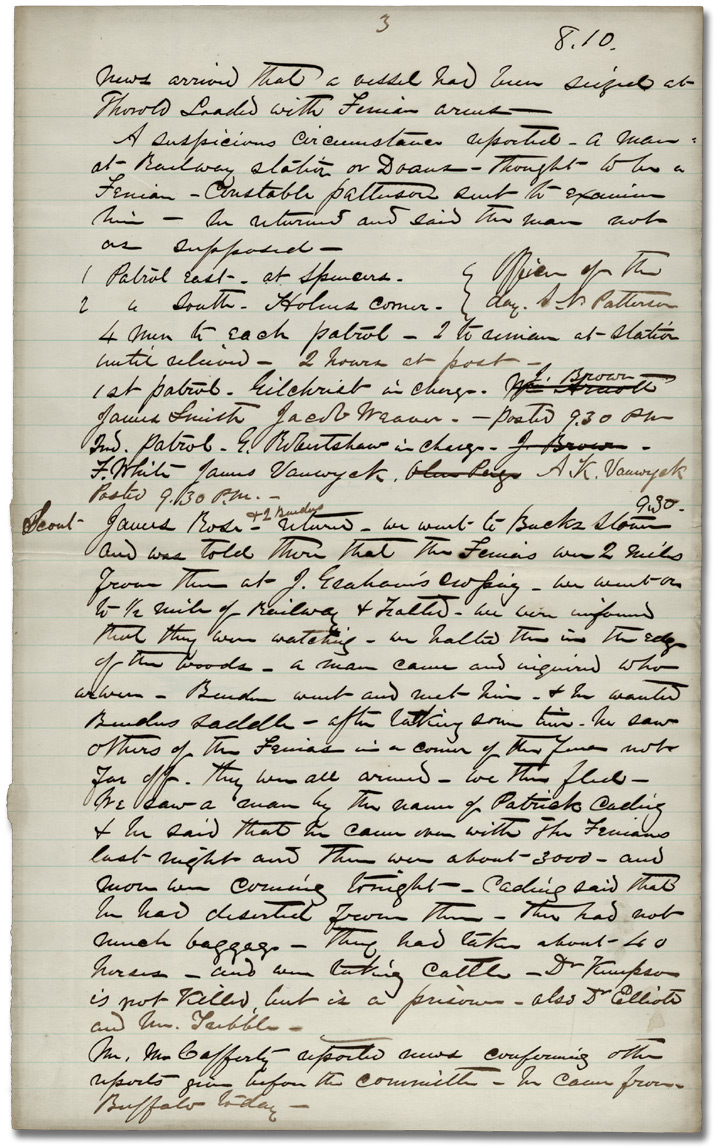 3
8.10.
News arrived that a vessel had been seized at
Thorold Loaded with Fenian arms—
A suspicious circumstance reported – a man
at Railway station or Doans – thought to be a
Fenian – Constable patterson sent to examine
him – he returned and said the man not
as supposed –
1 Patrol east – at Spencers. } Officer of the
2 " South – Holms corner – } day. Patterson
4 men to each patrol – 2 to remain at station
until relieved – 2 hours at post –
1st patrol – Gilchrist in charge. Wm Arnott J. Brown
James Smith Jacob Weaver. – Posted 9.30 PM
2nd. patrol – G. Robertshaw in charge – J Brown –
F. White James Vanwyck. A. K. Vanwyck
Posted 9.30 P.M. –
9.30 –
Scout – James Rose & 2 Benders – returned – we went to Bucks Store
and was told there that the Fenians were 2 miles
from there at J. Graham's crossing – we went on
to ½ mile of Railway & Halted – we were informed
that they were watching – we halted then in the edge
of the woods – a man came and inquired who
we were – Bender went and met him – & he wanted
Benders saddle – after talking some time – he saw
others of the Fenians in a corner of the fence not
far off. they were all armed – we then fled –
We saw a man by the name of Patrick Cading
& he said that he came over with the Fenians
last night and there were about 3000 – and
more were coming tonight – Cading said that
he had deserted from them – they had not
much baggage – they had taken about 40
horses – and were taking cattle – Dr Kempson
is not Killed, but is a prisoner – also Dr Elliott
and Mr. Tribble –
Mr. McCafferty reported news confirming other
reports given before the committee – he came from
Buffalo today –